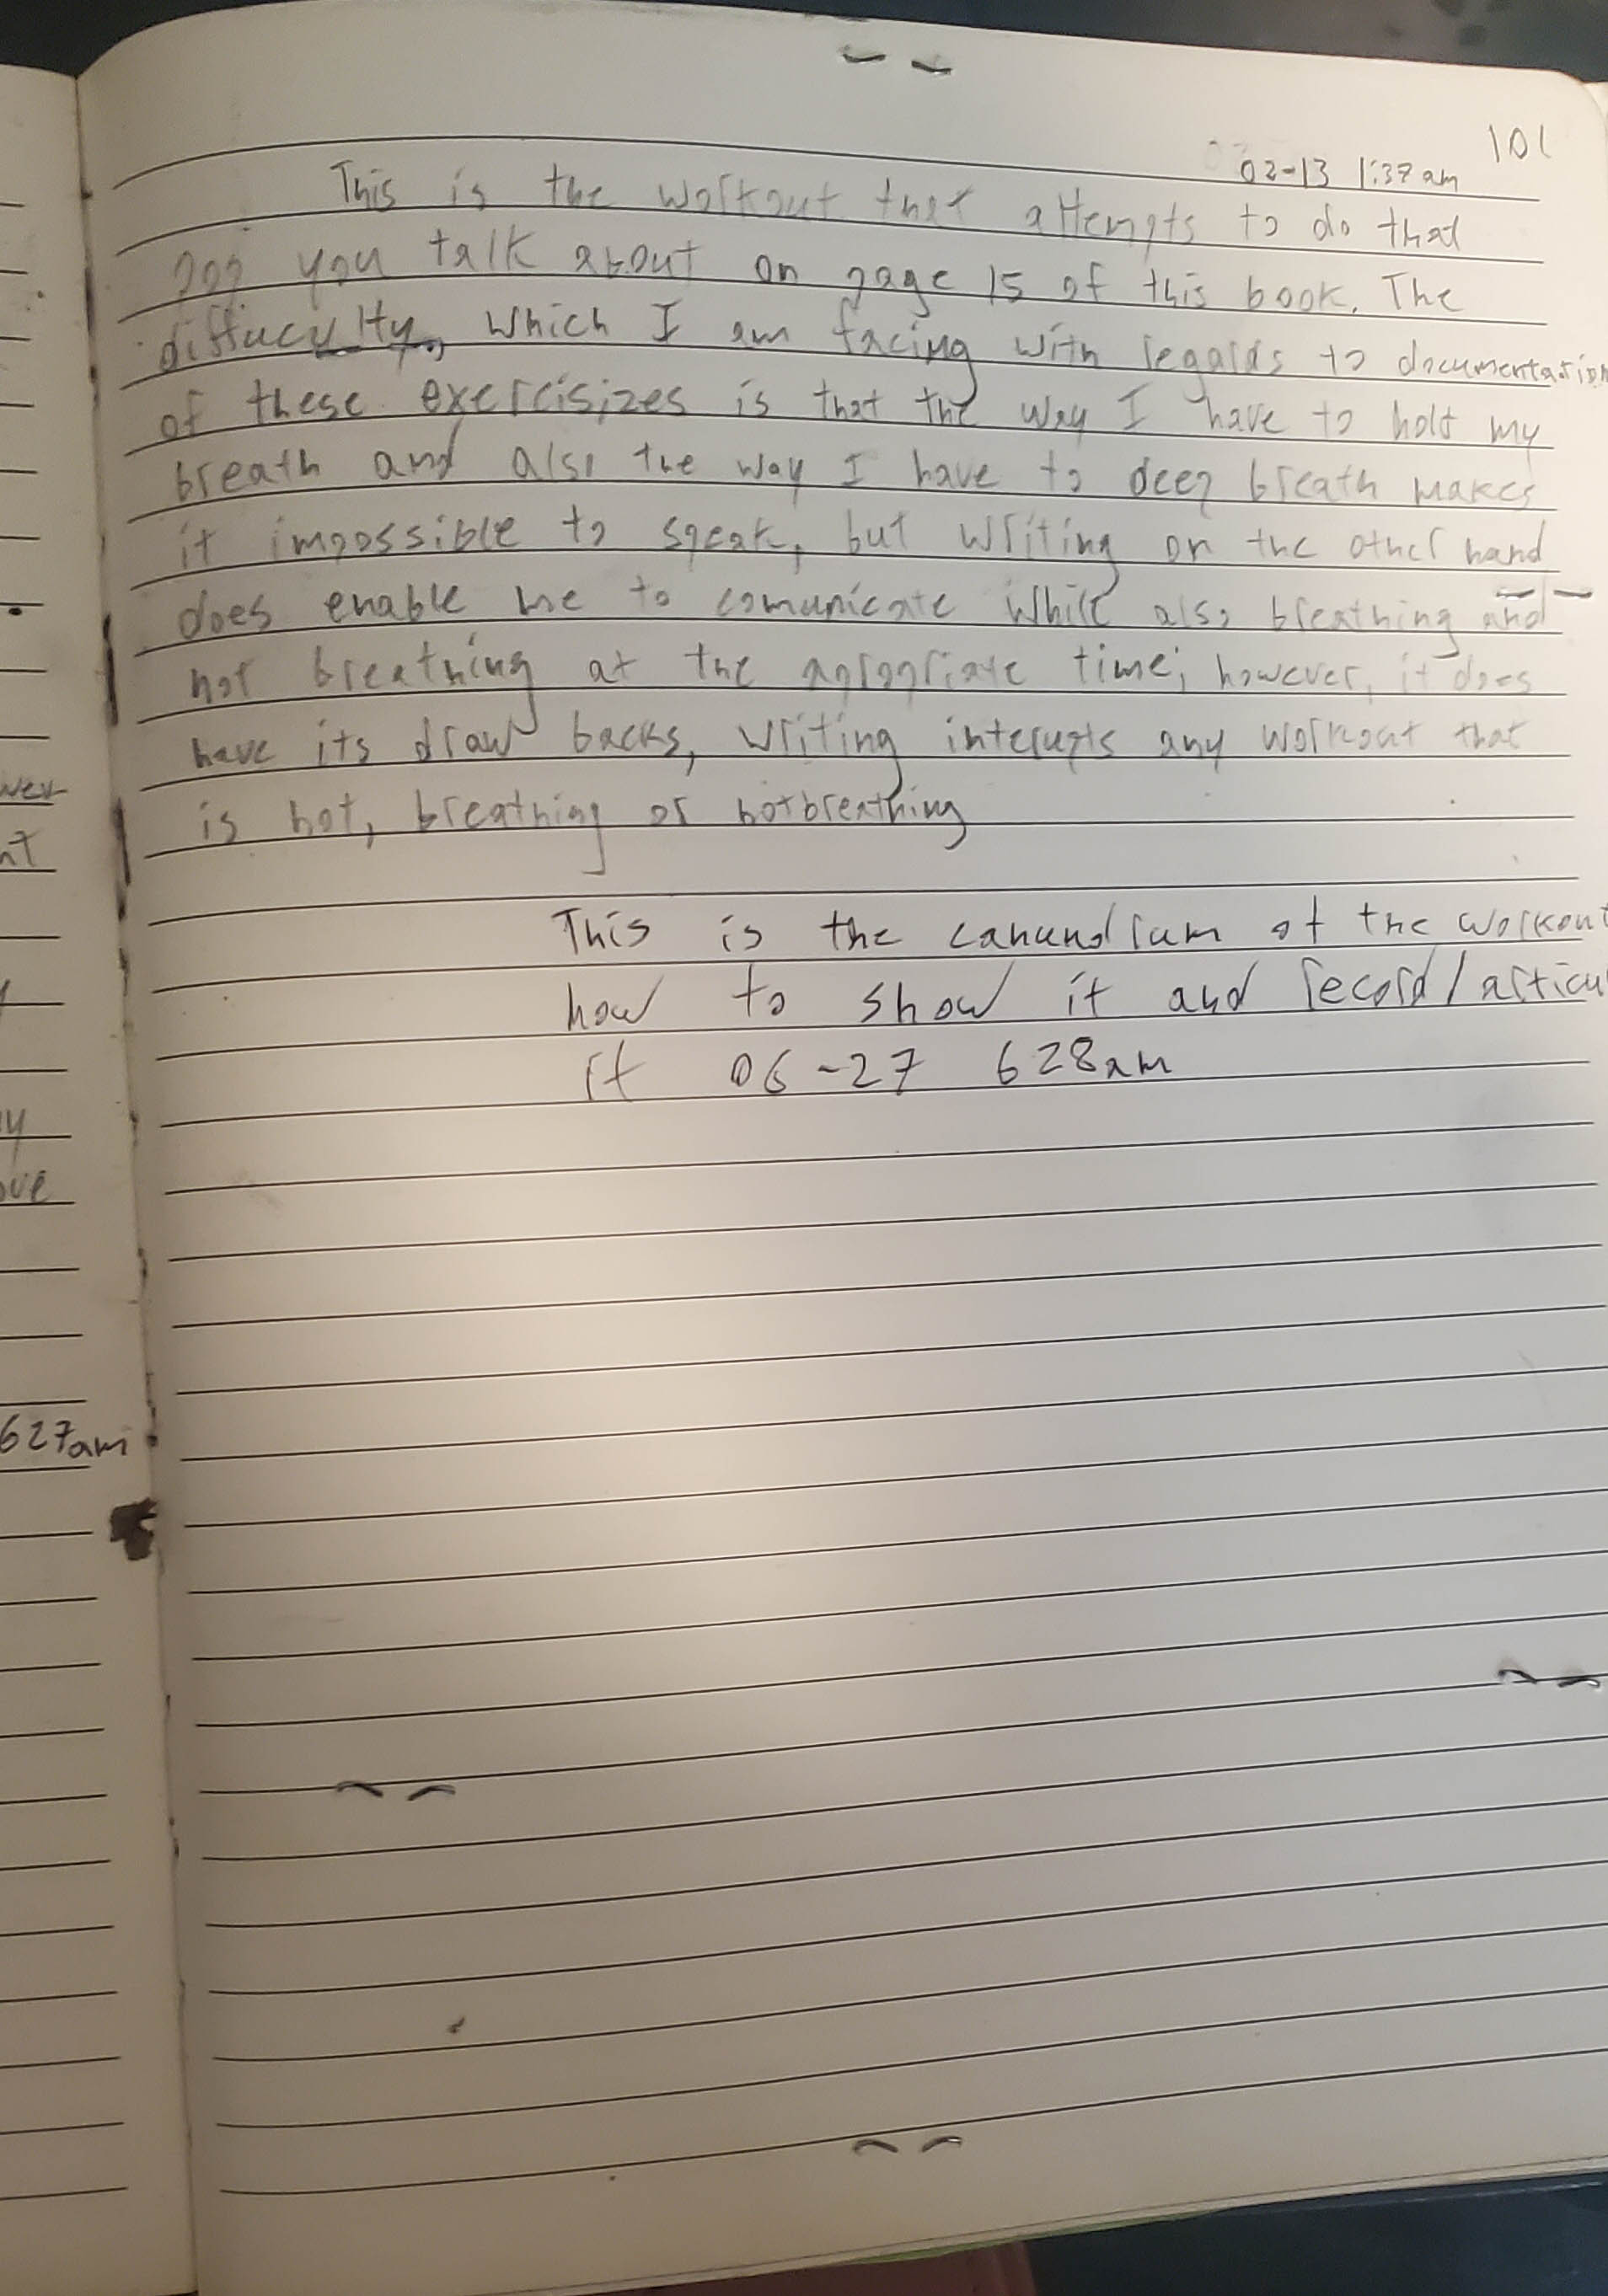 101
02-13 1:37am
This is the workout that attempts to do that
pop you talk about on page 15 of this book. The
diffuculty, which I am facing with regards to documentation
of these exercisizes is that the way I have to hold my
breath and also the way I have to deep breath makes
it impossible to speak, but writing on the other hand
does enable me to comunicate while also breathing and
not breathing at the apropriate time; however, it does
have its draw backs, writing interupts any workout that
is not, breathing or notbreathing
This is the canundrum of the workout
how to show it and record/articu
it 06-27 628am
wer
nt
y
ove
627am